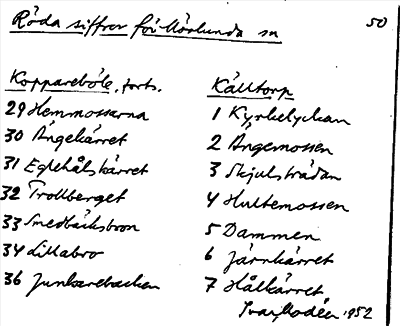 Röda siffror för Norlunda sn
50
Koppareböle, forts.
29 Hemmossarna
30 Ängekärret
31 Eqlehålskärret
32 Trollberget
33 Smedbäcksbron
34 Lillabro
36 Junkarebacken
Källtorp
1 Kyrkelyckan
2 Ängemossen
3 Skjulsträdan
4 Hultemossen
5 Dammen
6 Järnkärret
7 Hålkärret
Ivar Modéer 1952